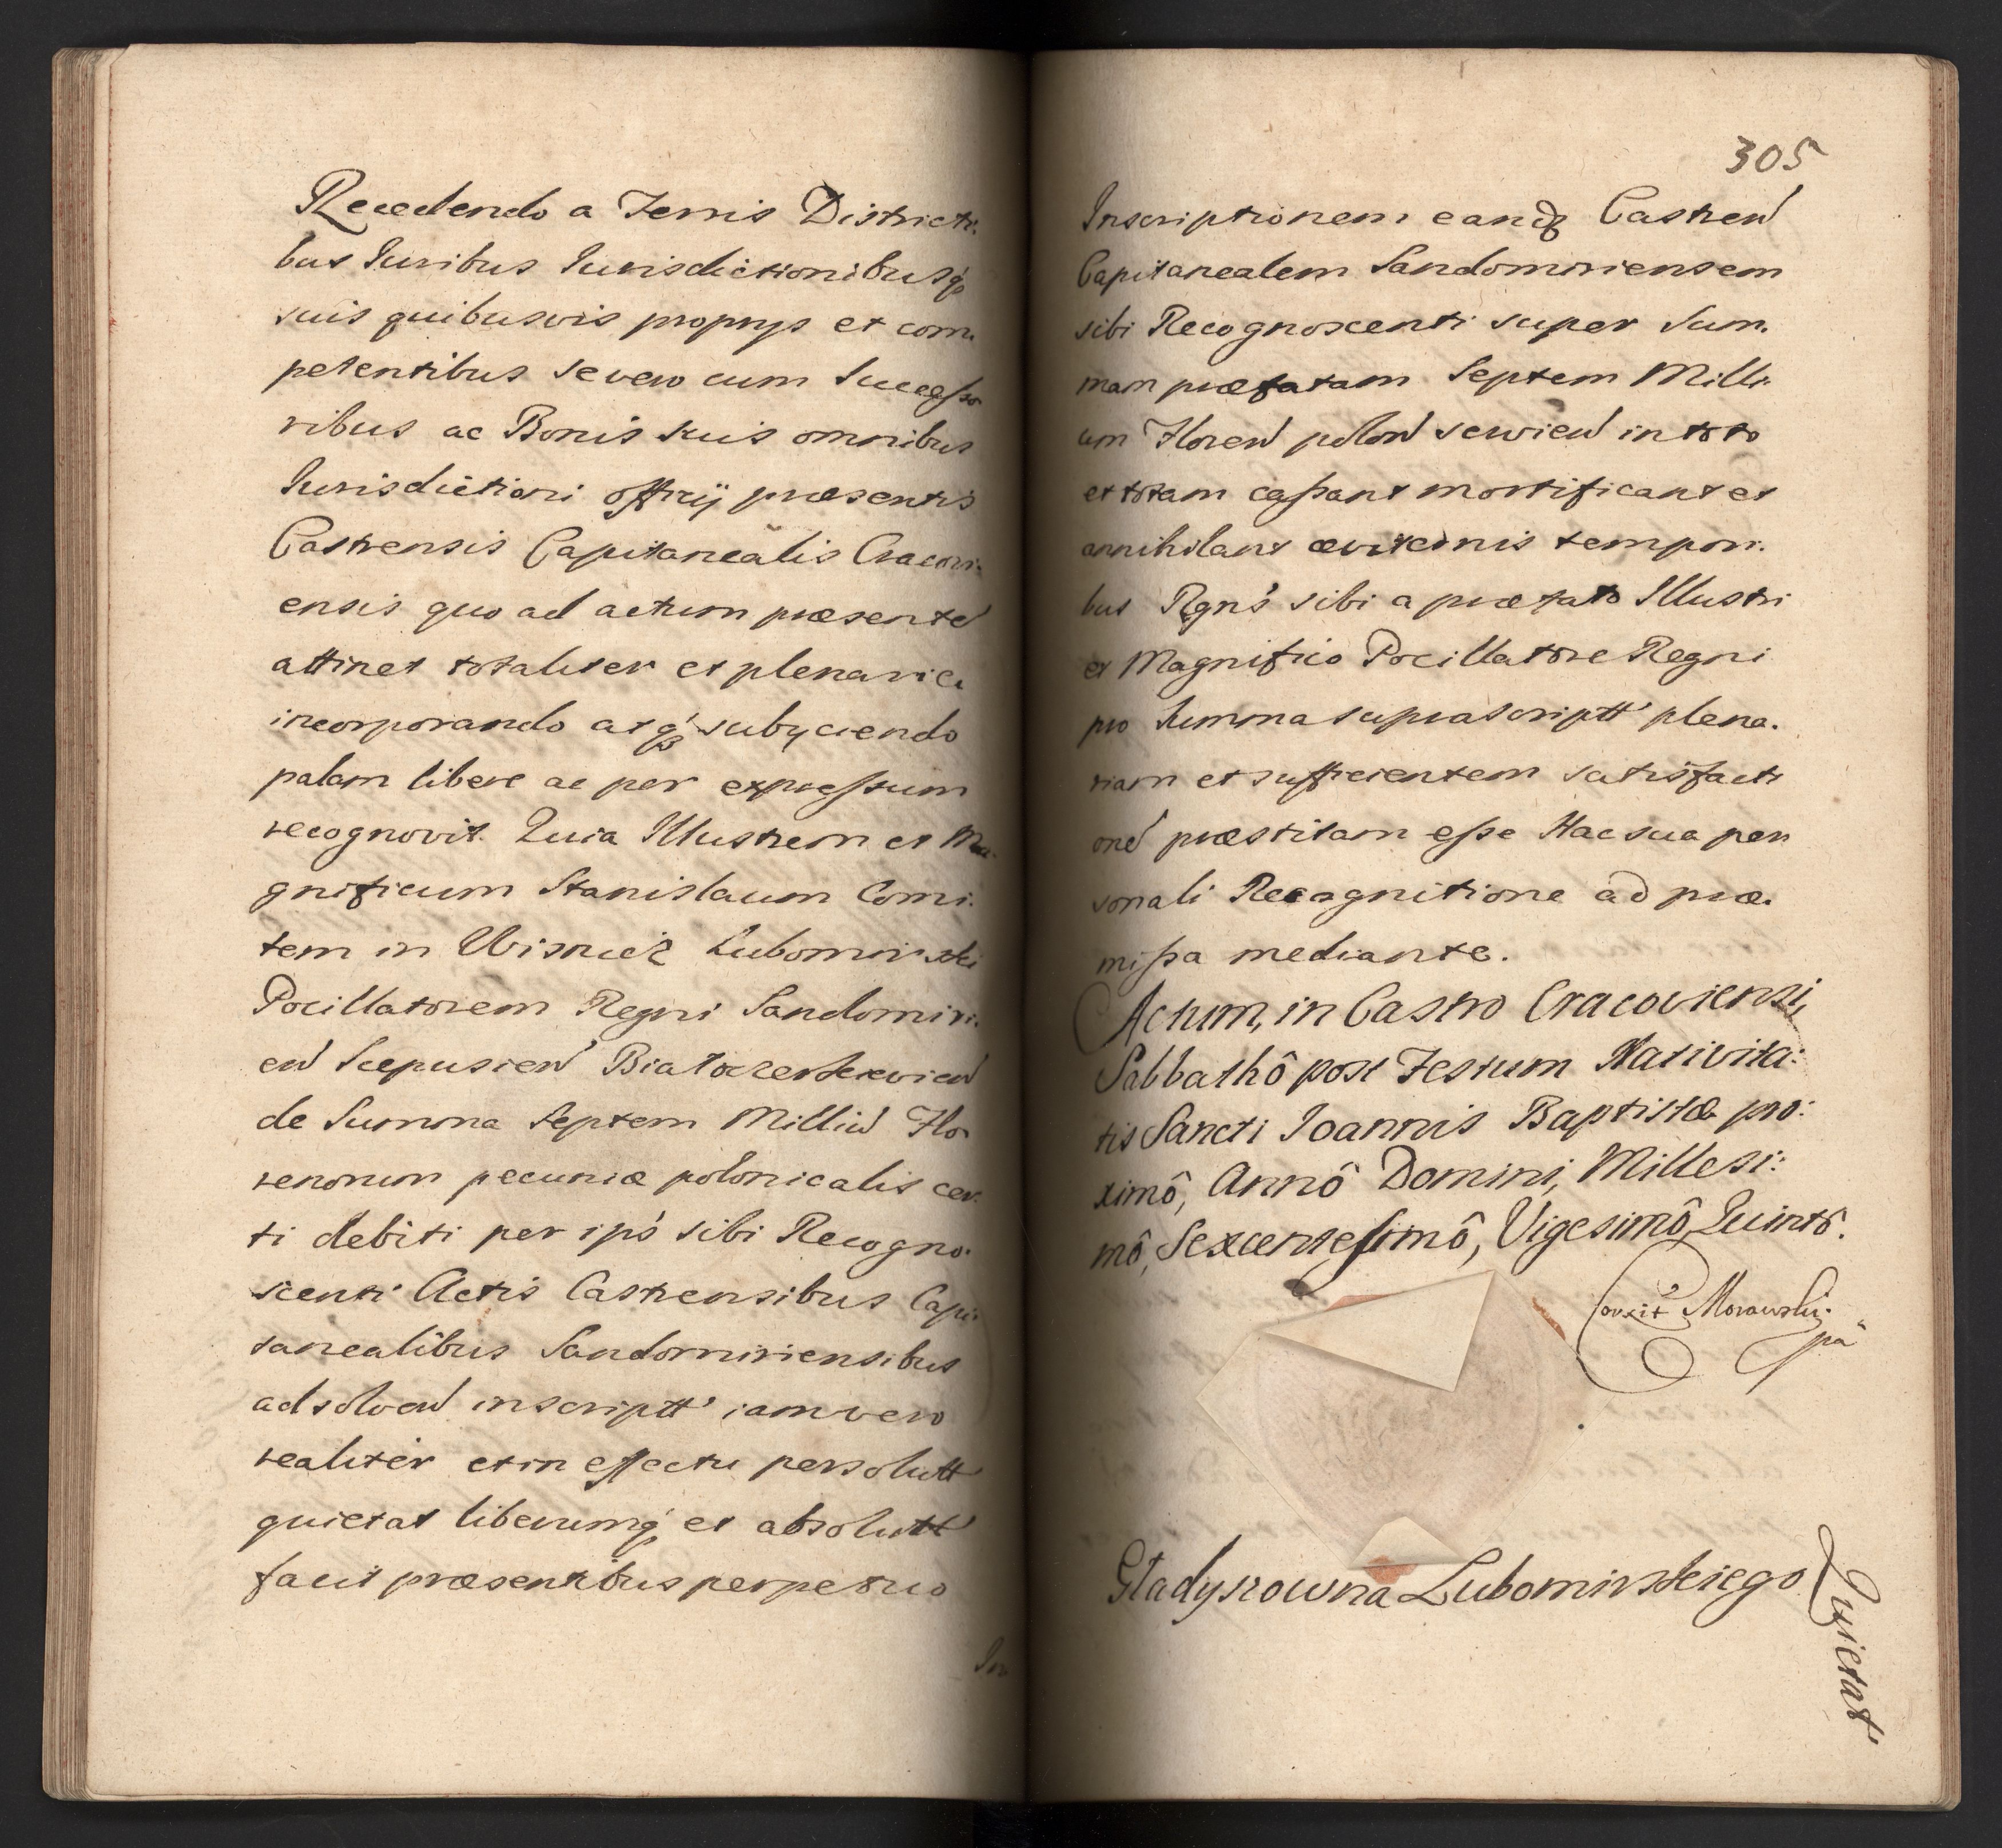 Recedendo a Terris Districti.
bus Iuribus Iurisdictionibusq́
suis quibusvis proprys et com.
petentibus se vero cum Successo
ribus ac Bonis suis omnibus
Iurisdictioni officij præsentis
Castrensis Capitanealis Cracovi.
ensis quo ad actum præsente
attinet totaliter et plenarie.
incorporando atq́ subyciendo
palam libere ac per expressum
recognovit. Quia Illustrem et Ma
gnificum Stanislaum Comi.
tem in Wisnicz Lubomirski
Pocillatorem Regni Sandomiri.
en Scepusien Białocerkievien
de Summa Septem Milliu Flo
renorum pecuniæ polonicalis cer.
ti debiti per ips sibi Recogno.
scenti Actis Castrensibus Capi
tanealibus Sandomiriensibus
ad solven inscriptt' iam vero
realiter et in effectu persolutt
quietat liberumq́ et absolutt
facit præsentibus perpetuo
In
305
Inscriptionem eandq Castren
Capitanealem Sandomiriensem
sibi Recognoscenti super Sum.
mam præfatam Septem Milli.
um Floren polon servien in toto
et totam cassant mortificant et
annihilant æviternis tempori.
bus Rgns' sibi a præfato Illustri
et Magnifico Pocillatore Regni
pro Summa suprascriptt' plena.
riam et sufficientem satisfacti
one præstitam esse Hac sua per
sonali Recognitione ad præ.
missa mediante.
Actum, in Castro Cracoviensi,
Sabbathô post Festum Nativita:
tis Sancti Ioannis Baptistæ pro:
ximô, Annô Domini, Millesi:
mô, Sexcentesimô, Vigesimô, Quintô.
Corxit Morawski.
pa
Gładyszowna Lubomirskiego
Quietat